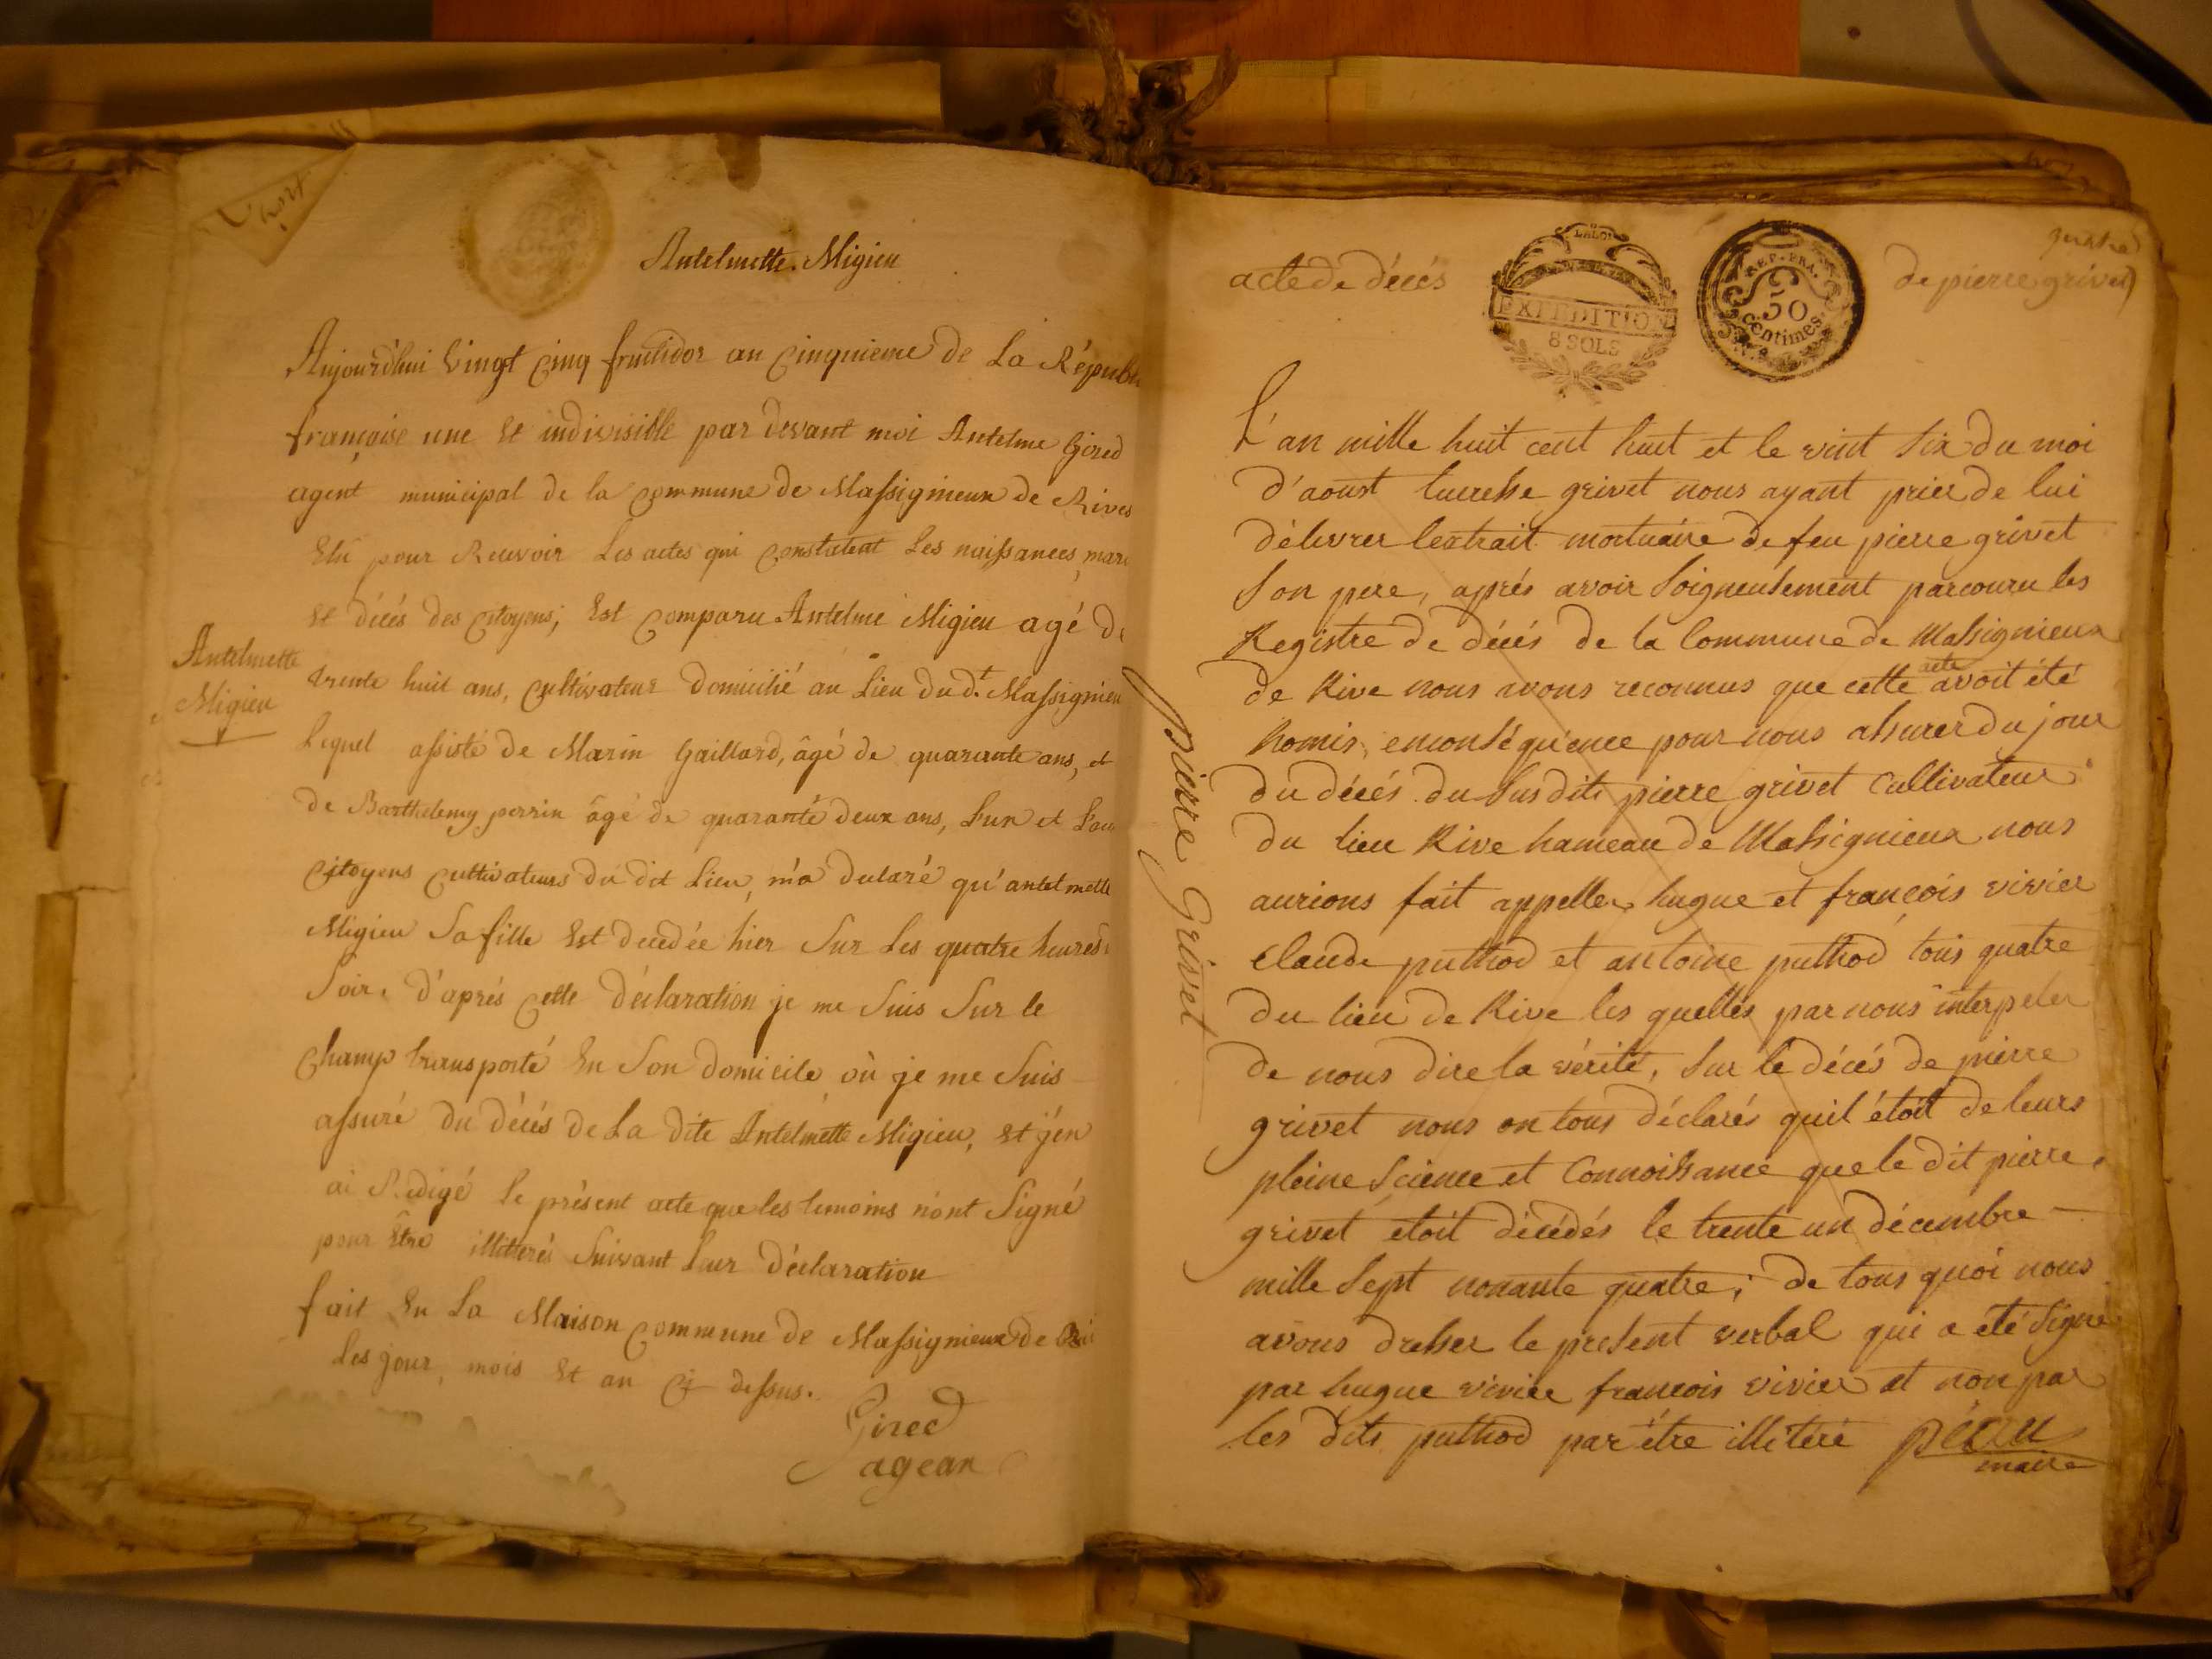 Antelmette Migieu
Aujourd'hui Vingt Cinq fructidor an Cinquieme de La Répub
françoise une et indivisible par devant moi Antelme Gired
agent municipal de la Commune de Massignieux de Rives
Elu pour Recevoir Les actes qui Constatent Les naissances, mar
et décés des Citoyens; Est Comparu Antelme Migieu agé de
trente huit ans, Cultivateur Domicilié au Lieu du d.t Massignieu
Lequel assisté de Marin Gaillard, âgé de quarante ans, et
de Barthelemy perrin âgé de quarante deux ans, L'un et L'au
Citoyens Cultivateurs du dit Lieu, m'a declaré qu'antelmette
Migieu Sa fille Est decedée hier Sur Les quatre heures
Soir. d'aprés Cette déclaration je me Suis Sur le
Champ transporté En Son Domicile où je me Suis
assuré du décés de La dite Antelmette Migieu, et j'en
ai Redigé le présent acte que les temoins n'ont Signé
pour Etre illitterés Suivant Leur Déclaration
fait En La Maison Commune de Massignieux de
Les jour, mois Et an Ci dessus.
Gired
agean
Antelmette
Migieu
acte de décés
LA LOI
EXPEDITION
8 SOLS
REP. FRA.
50
centimes
de pierre grivet
Pierre Grivet
L'an mille huit cent huit et le vint six du moi
d'aoust lucresse grivet nous ayant prier de lui
délivrer lextrait mortuaire de feu pierre grivet
Son pere, aprés avoir Soigneusement parcouru les
Registre de décés de la Commune de Massignieux
de Rive nous avons reconnus que cette acte avoit été
homis, enconséquence pour nous assurer du jour
du décés du Susdit pierre grivet Cultivateur
du lieu Rive hameau de Massignieux nous
aurions fait appeller hugue et françois vivier
claude puthod et antoine puthod tous quatre
du lieu de Rive les quelles par nous interpeler
de nous dire la vérité, Sur le décés de pierre
grivet nous on tous déclarés quil étoit de leurs
pleine Science et Connoissance que le dit pierre
grivet etoit décédés le trente un décembre
mille Sept nonante quatre; de tous quoi nous
avons dresser le present verbal qui a été Signé
par hugue vivier francois vivier et non par
les dits puthod par être illitéré
maire